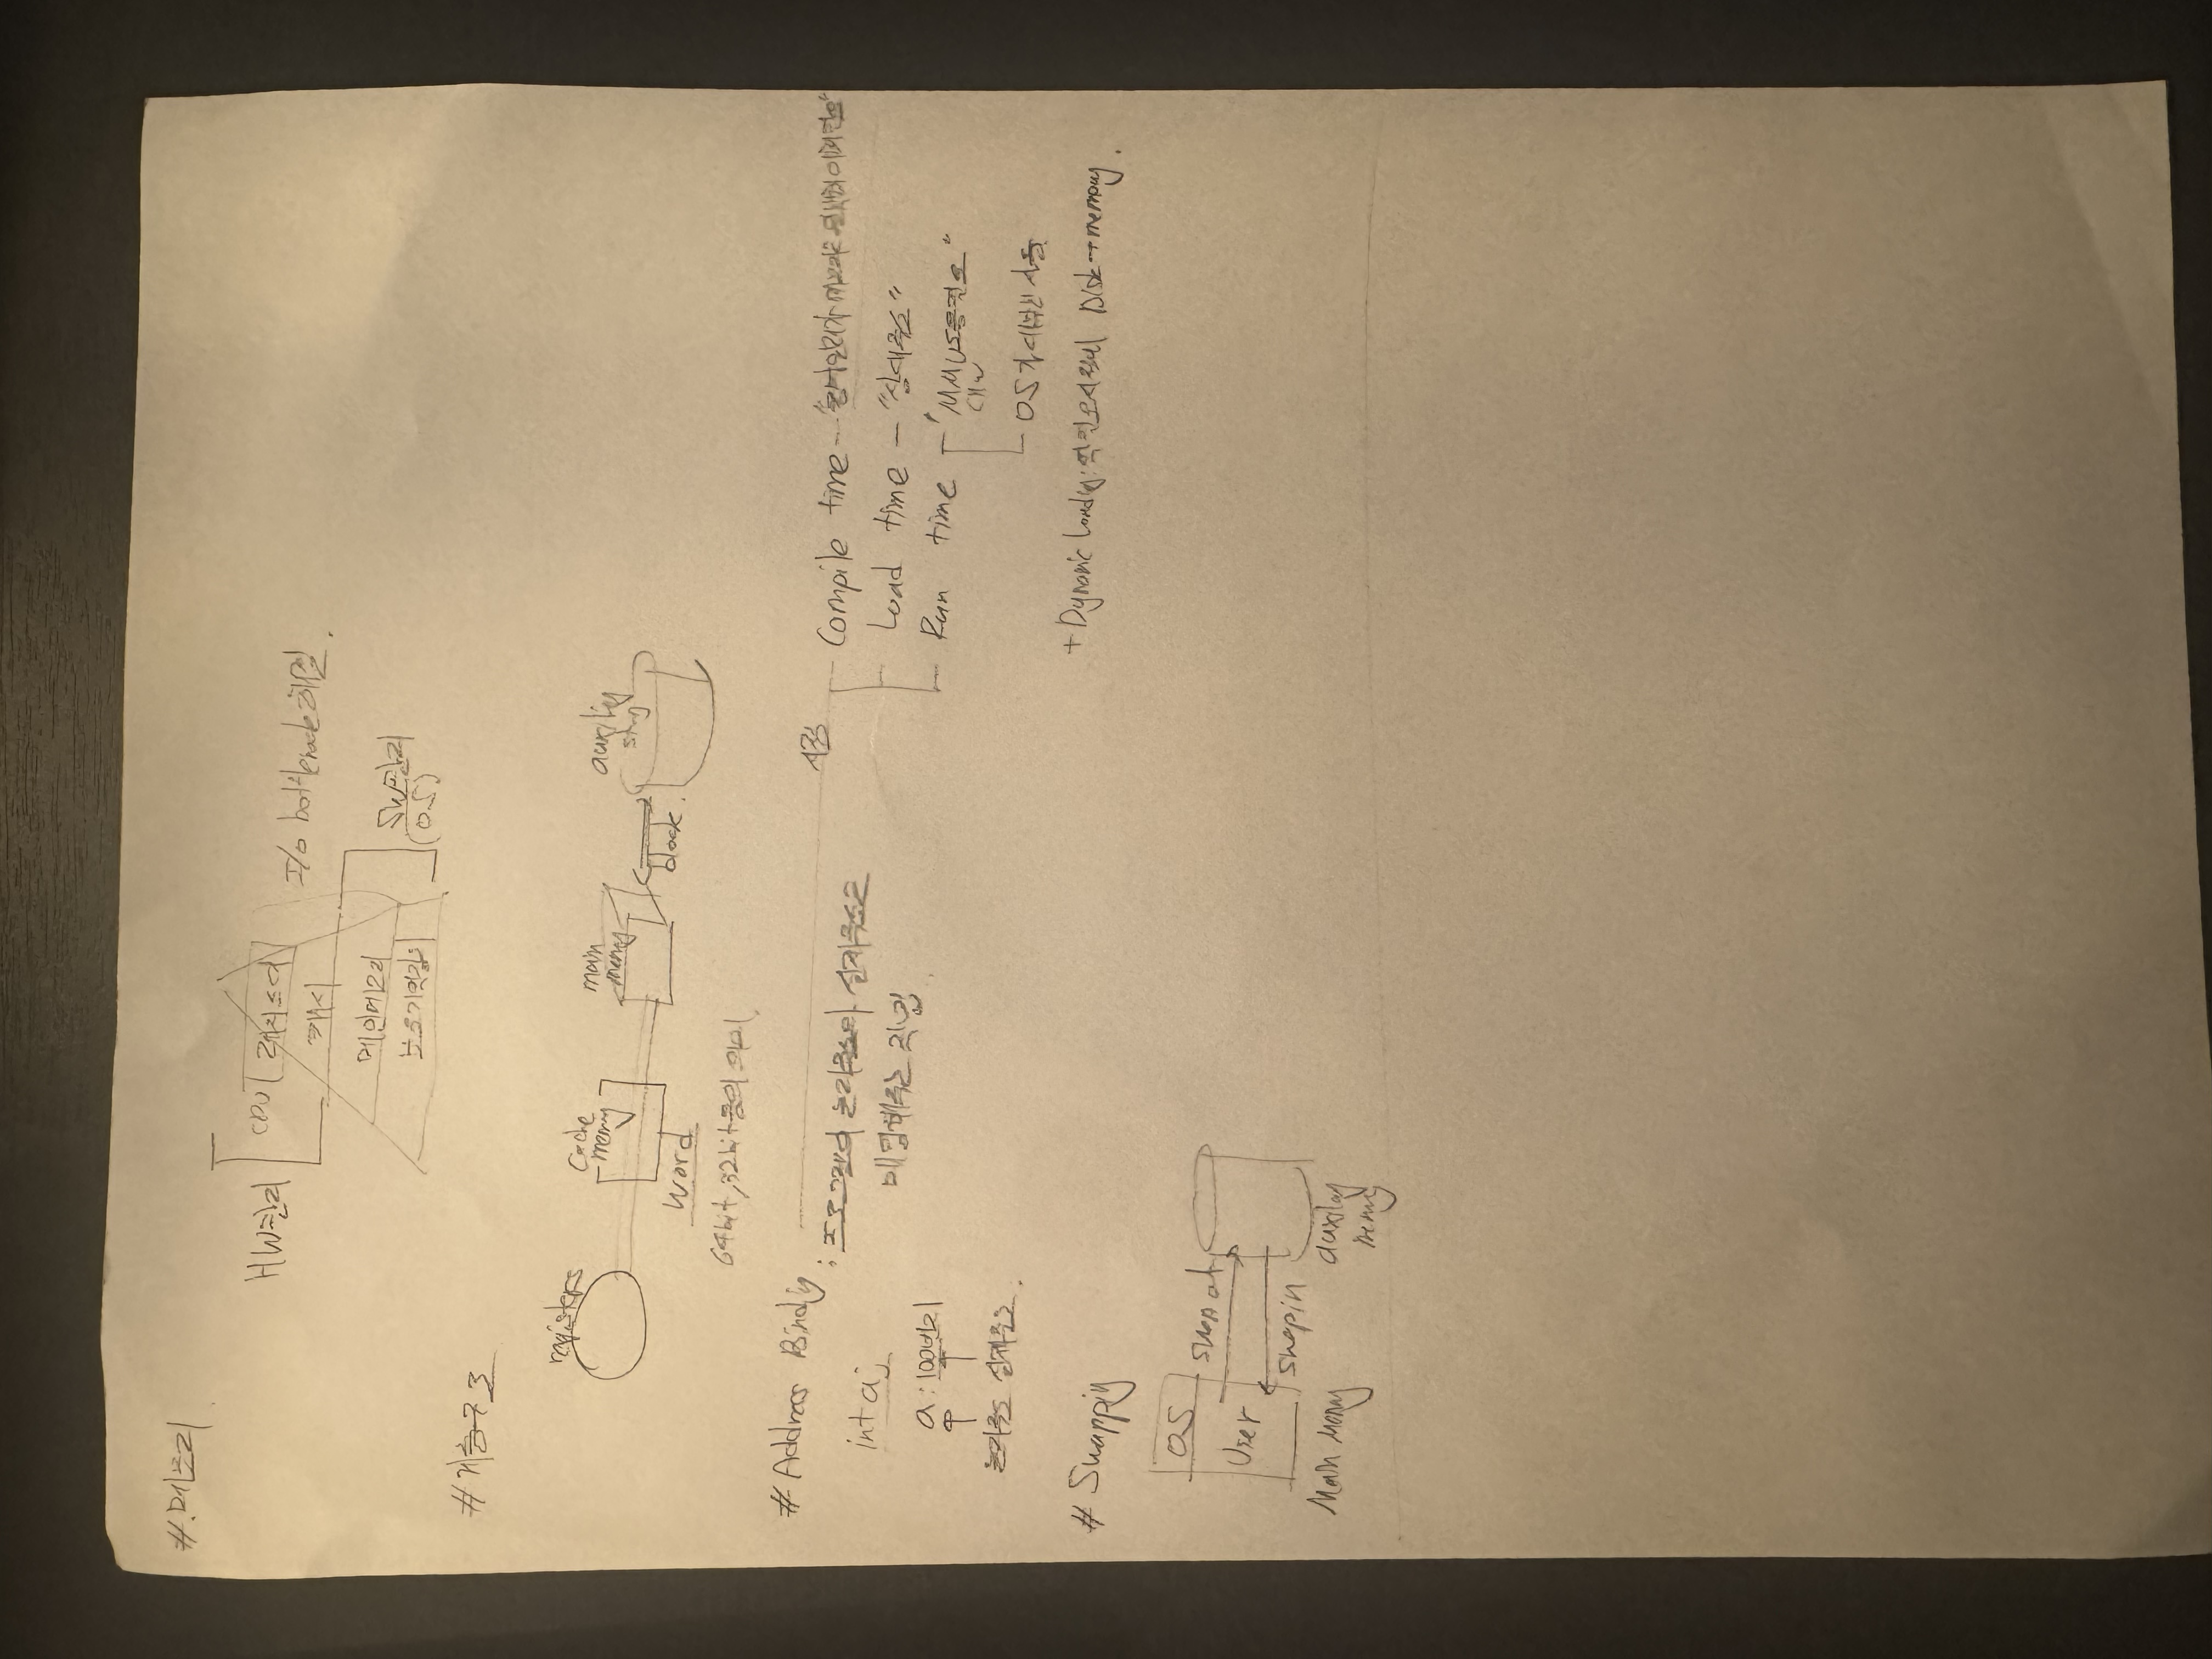 #.메모리
HW관리
CPU 레지스터
캐시
I/o bottleneck 해결.
메인메모리
보조기억장치
SW관리
(OS)
#계층구조
registers
Cache
memory
main
memory
auxiliary
block.
Word
64bit, 32bit 등의 의미
# Address Binding
: 프로그램의 논리주소와 실제주소를
매핑해주는 작업
int a;
a : 100번지
논리주소 실제주소.
시점
Compile time -
Load time - "상대주소"
Run time "MMU 도움 필요"
(HW
OS가 대부분 사용.
+ Dynamic Loading: 필요시 Disk→memory.
# Swapping
OS
User
swap out
swapin
Main Memory
auxiliary
memory